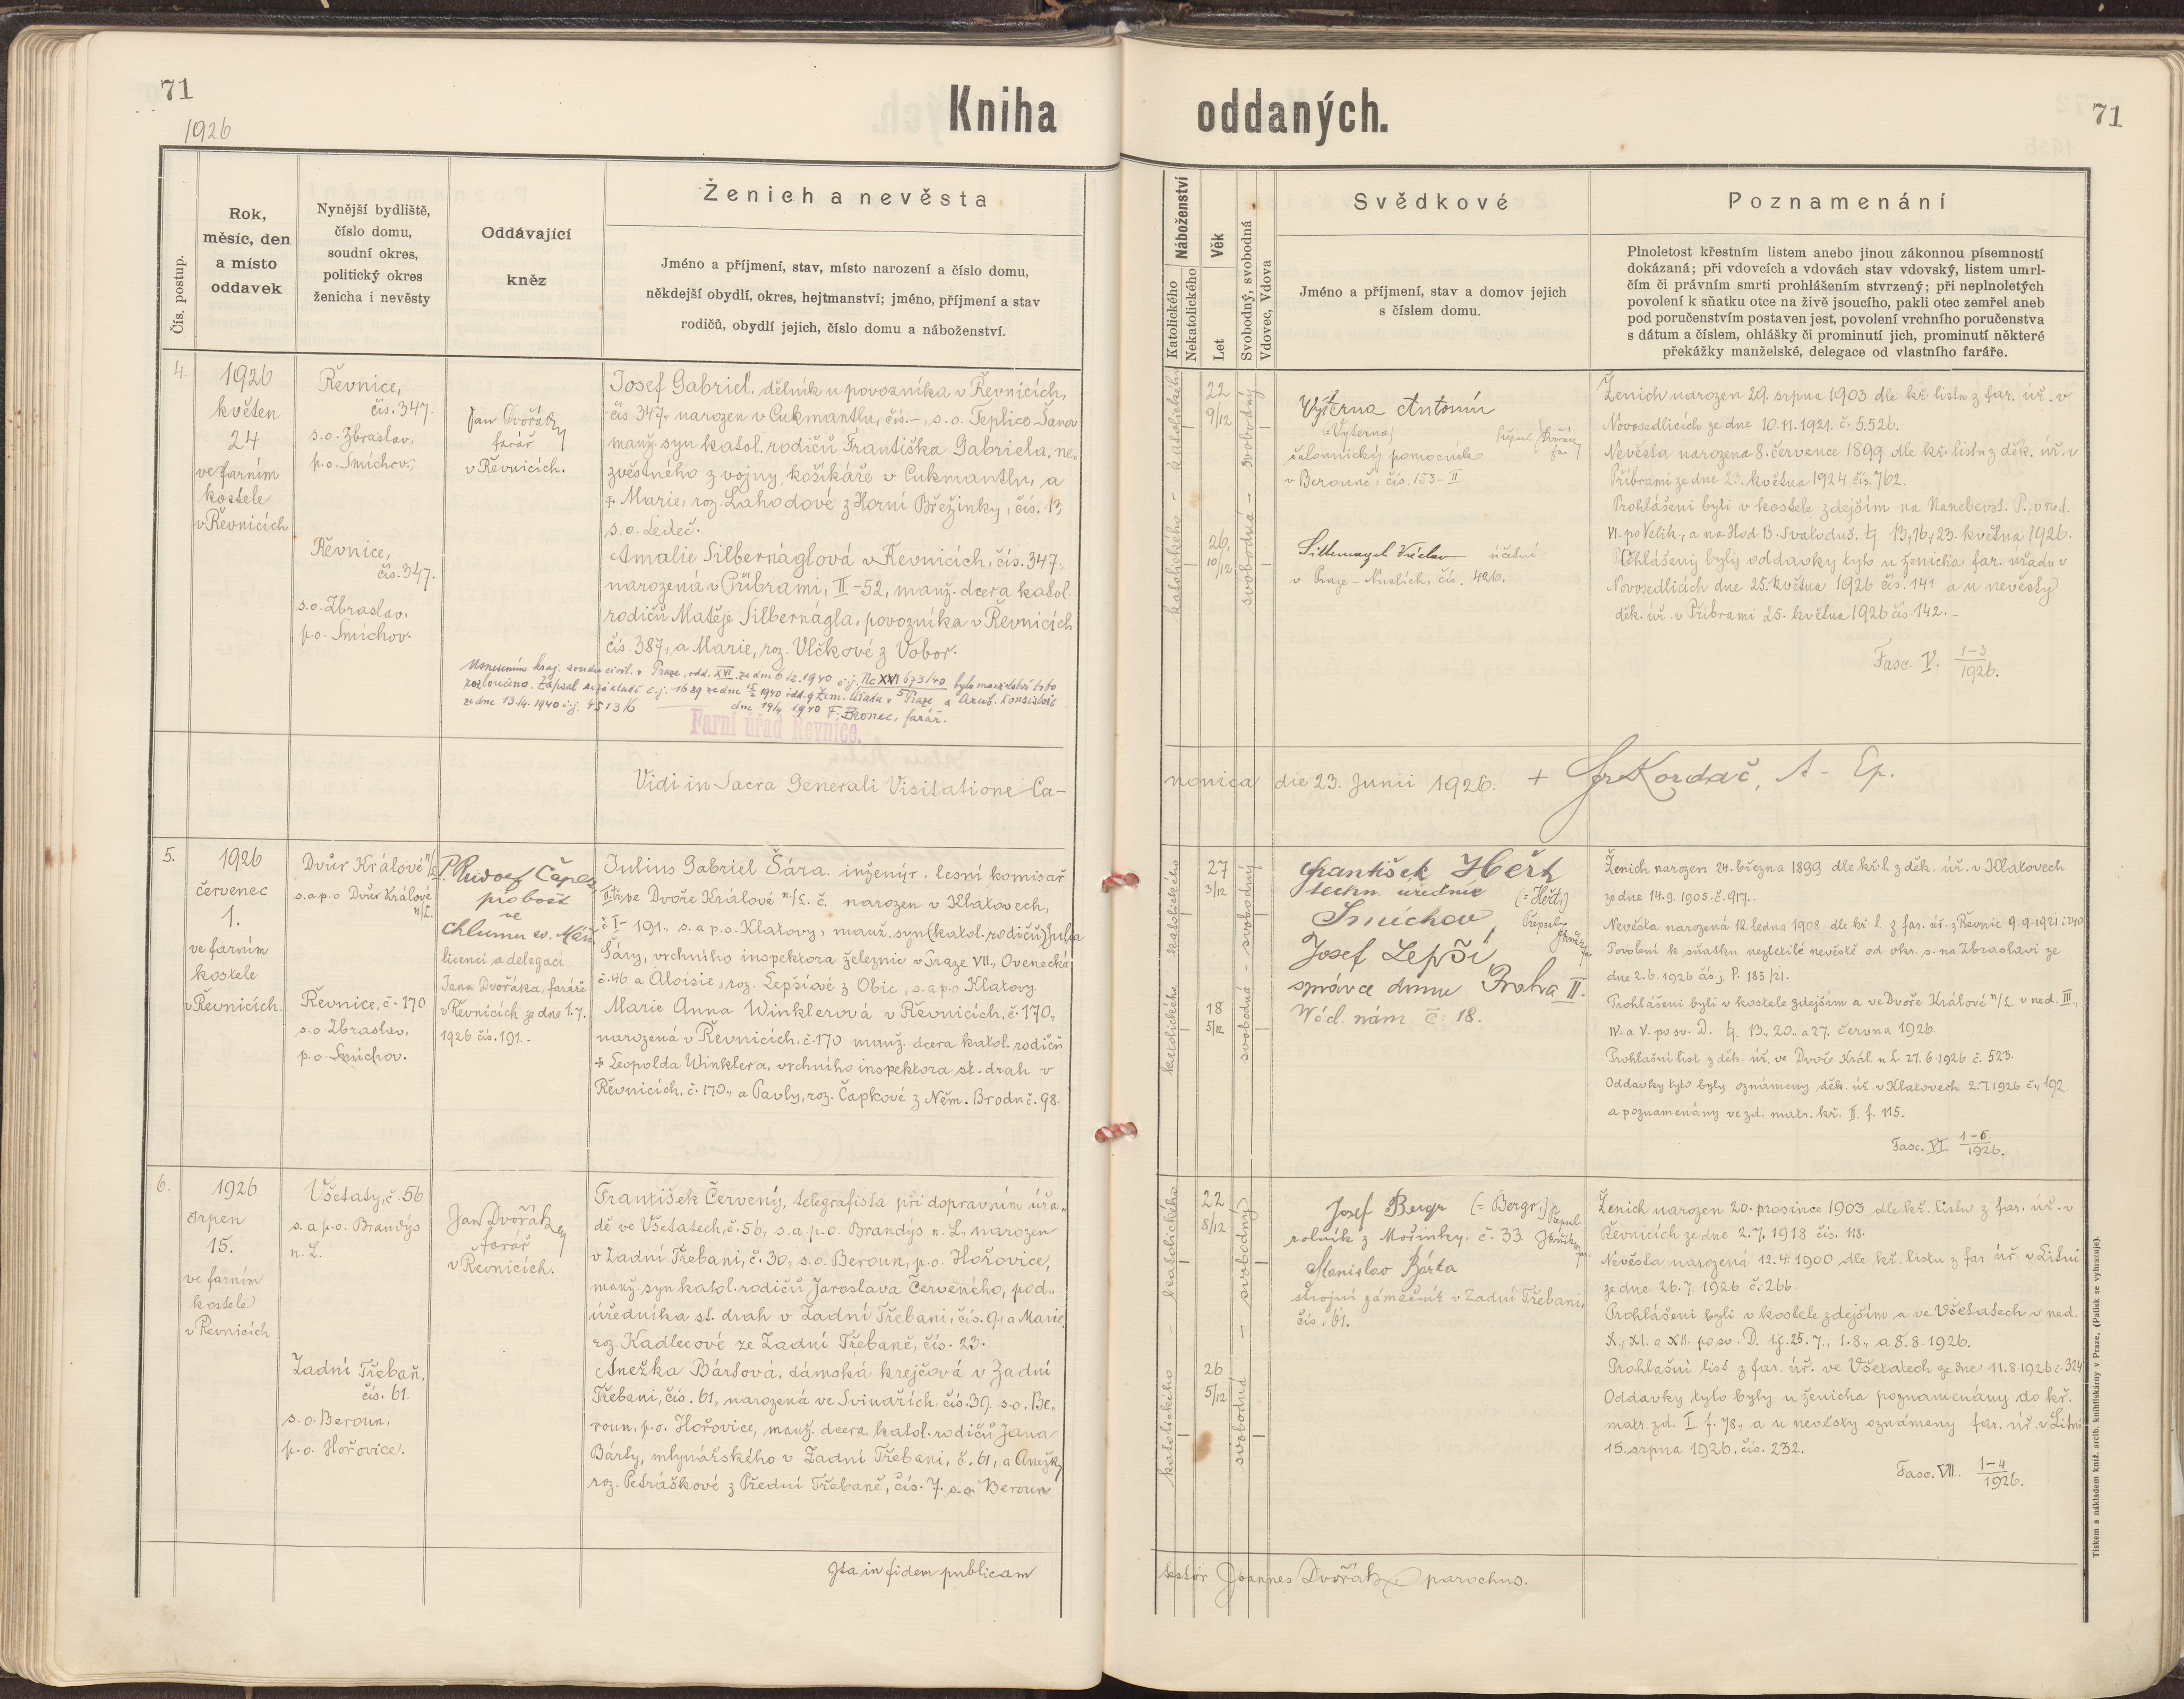 71
1926
Kniha
oddaných.
71
Čís. postup.
Rok,
měsíc, den
a místo
oddavek
Nynější bydliště,
číslo domu,
soudní okres,
politický okres
ženicha i nevěsty
Oddávající
kněz
Ženich a nevěsta
Jméno a příjmení, stav, místo narození a číslo domu,
někdejší obydlí, okres, hejtmanství; jméno, příjmení a stav
rodičů, obydlí jejich, číslo domu a náboženství.
Náboženství
Katolického
Nekatolického
Věk
Let
Svobodný, svobodná
Vdovec, Vdova
Svědkové
Jméno a příjmení, stav a domov jejich
s číslem domu.
Poznamenání
Plnoletost křestním listem anebo jinou zákonnou písemností
dokázaná; při vdovcích a vdovách stav vdovský, listem umrl-
čím či právním smrti prohlášením stvrzený; při neplnoletých
povolení k sňatku otce na živě jsoucího, pakli otec zemřel aneb
pod poručenstvím postaven jest, povolení vrchního poručenstva
s dátum a číslem, ohlášky či prominutí jich, prominutí některé
překážky manželské, delegace od vlastního faráře.
4.
1926
květen
24
ve farním
kostele
v Řevnicích
Řevnice,
čís. 347.
s.o. Zbraslav,
p.o. Smíchov.
Řevnice,
čís. 347.
s.o. Zbraslav,
p.o. Smíchov.
Jan Dvořák
farář
v Řevnicích.
Josef Gabriel, dělník u povozníka v Řevnicích,
čís 347, narozen v Cukmantlu, čís.-, s.o. Teplice-Šanov
manž. syn katol. rodičů Františka Gabriela, ne„
zvěstného z vojny, košíkáře v Cukmantlu, a
+ Marie, roz. Lahodové z Horní Břežinky, čís. 13,
s.o. Ledeč.
Amalie Silbernáglová v Řevnicích, čís. 347,
narozená v Příbrami, II-52, manž. dcera katol.
rodičů Matěje Silbernágla, povozníka v Řevnicích
čís. 387, a Marie, roz. Vlčkové z Obor.
Usnesením kraj. soudu civil. v Praze, odd. XVI. ze dne 6.12.1940 č.j. Nc XVI 673/40 bylo manželství toto
rozloučeno. Zápsal na základě č.j. 1689 ze dne 1940 odd. 9 Zem. úřadu v Praze a Arcib. konsistoře
ze dne 13./4. 1940 č.j. 4513/6 dne 19/4 1940 F. Bronec, farář.
Farní úřad Řevnice.
katolického - katolického
22
9/12
26,
10/12
svobodná - svobodný
Výterna Antonín
(=Vyterna)
Připsal Dvořák
far
čalounický pomocník
v Berouně, čís. 153-II
Silbernagl Václav účetní
v Praze-Nuslích, čís. 426.
Ženich narozen 29. srpna 1903 dle kř. listu z far. úř. v
Novosedlicích ze dne 10.11.1921. č. 5.526.
Nevěsta narozena 8. července 1899 dle kř. listu z děk. úř. v
Příbrami ze dne 23. května 1924 čís. 762.
Prohlášeni byli v kostele zdejším na Nanebevst. P., v ned.
VI. po Velik., a na Hod B. Svatoduš. tj. 13, 16, 23. května 1926.
Ohlášeny byly oddavky tyto u ženicha far. úřadu v
Novosedlicích dne 25. května 1926 čís. 141 a u nevěsty
děk. úř. v Příbrami 25. května 1926 čís. 142.-
Fasc. V. 1-3/1926.
Vidi in Sacra Generali Visitatione Ca-
nonica die 23. Junii 1926. + Fr Kordač, A-Ep.
5.
1926
červenec
1.
ve farním
kostele
v Řevnicích.
Dvůr Králové n/L.
s.a p.o Dvůr Králové
n/L.
Řevnice, č. 170
s.o Zbraslav,
p.o. Smíchov.
P. Rudolf Čapek,
probošt
ve
Chlumu sv. Máří
licencí a delegací
Jana Dvořáka, faráře
v Řevnicích ze dne 1.7.
1926 čís. 191.-
Julius Gabriel Šára, inženýr, lesní komisař
II. tř. ve Dvoře Králové n/L. č. narozen v Klatovech,
č. I-191., s.a p.o. Klatovy, manž. syn (katol. rodičů) Julia
Šáry, vrchního inspektora železnic v Praze VII., Ovenecká
č. 46 a Aloisie, roz. Lepšíové z Obic, s.a p.o Klatovy.
Marie Anna Winklerová v Řevnicích, č. 170,
narozená v Řevnicích, č. 170 manž. dcera katol. rodičů
+ Leopolda Winklera, vrchního inspektora st. drah v
Řevnicích, č. 170, a Pavly, roz. Čapkové z Něm. Brodu č. 98.
katolického katolického
27
3/12
18
5/12
svobodná - svobodný
František Heřt
techn. úředník (=Heřt,)
Smíchov,
Připsal
Josef Lepší,
správce domu Praha II.
Václ. nám. č. 18.
Ženich narozen 24. března 1899 dle kř. l. z děk. úř. v Klatovech
ze dne 14.9.1905. č. 917.
Nevěsta narozená 12. ledna 1908 dle kř. l. z far. úř. z Řevnic 9.9.1921 č. 240
Povolení k sňatku nezletilé nevěstě od okr. s. na Zbraslavi ze
dne 2.6.1926 čís.j. P. 183/21.
Prohlášeni byli v kostele zdejším a ve Dvoře Králové n/L v ned. III.,
IV. a V. po sv. D. tj. 13., 20. a 27. června 1926.
Prohlašní list z děk. úř. ve Dvoře Král. n L. 27.6.1926 č. 523.
Oddavky tyto byly oznámeny děk. úř. v Klatovech 2.7.1926 č., 192
a poznamenány ve zd. matr. kř. II. f. 115.
Fasc. VI. 1-6/1926.
6.
1926
srpen
15.
ve farním
kostele
v Řevnicích
Všetaty, č. 56
s. a p.o. Brandýs
n. L.
Zadní Třebaň,
čís. 61.
s.o. Beroun,
p.o. Hořovice.
Jan Dvořák
farář
v Řevnicích.
František Červený, telegrafista při dopravním úřa„
dě ve Všetatech, č. 56, s.a p.o. Brandýs n. L., narozen
v Zadní Třebani, č. 30, s.o. Beroun, p.o. Hořovice,
manž. syn katol. rodičů Jaroslava Červeného, pod„
úředníka st. drah v Zadní Třebani, čís. 9, a Marie,
roz. Kadlecové ze Zadní Třebaně, čís. 23.
Anežka Bártová, dámská krejčová v Zadní
Třebani, čís. 61, narozená ve Svinařích čís. 39. s.o. Be„
roun, p.o. Hořovice, manž. dcera katol. rodičů Jana
Bárty, mlynářského v Zadní Třebani, č. 61, a Anežky
roz. Petráškové z Přední Třebaně, čís. 7. s.o. Beroun
katolického - katolického
22
8/12
26
5/12
svobodná - svobodný
Josef Bergr (=Bergr,) Připsal
rolník z Mořinky, č. 33
Stanislav Bárta
strojní zámečník v Zadní Třebani,
čís. 61.
Ženich narozen 20. prosince 1903 dle kř. listu z far. úř. v
Řevnicích ze dne 2.7.1918 čís. 118.
Nevěsta narozená 12.4.1900 dle kř. listu z far. úř. v Litni
ze dne 26.7.1926 č. 266
Prohlášeni byli v kostele zdejším a ve Všetatech v ned.
X., XI. a XII. po sv. D. tj. 25.7., 1.8., a 8.8.1926.
Prohlašní list z far. úř. ve Všetatech ze dne 11.8.1926 č. 324
Oddavky tyto byly u ženicha poznamenány do kř.
matr. zd. I f. 78., a u nevěsty oznámeny far. úř. v Litni
15. srpna 1926. čís. 232.
Fasc. VII. 1-4/1926.
Ita in fidem publicam
testor Joannes Dvořák parochus.
Tiskem a nákladem kníž. arcib. knihtiskárny v Praze. (Patisk se vyhrazuje).